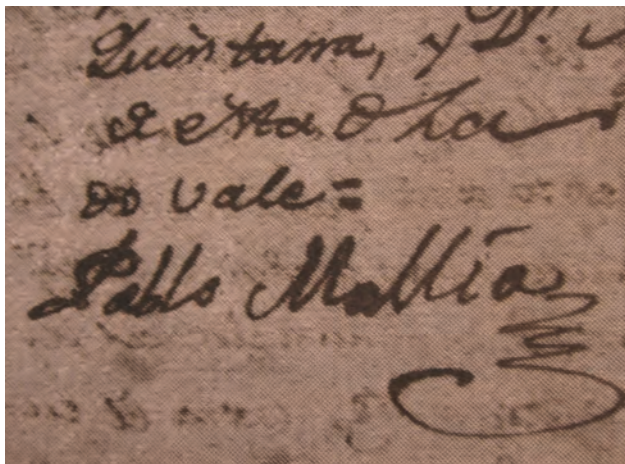 Quintana, y D.
de esta dha
do vale=
Pablo Mallía